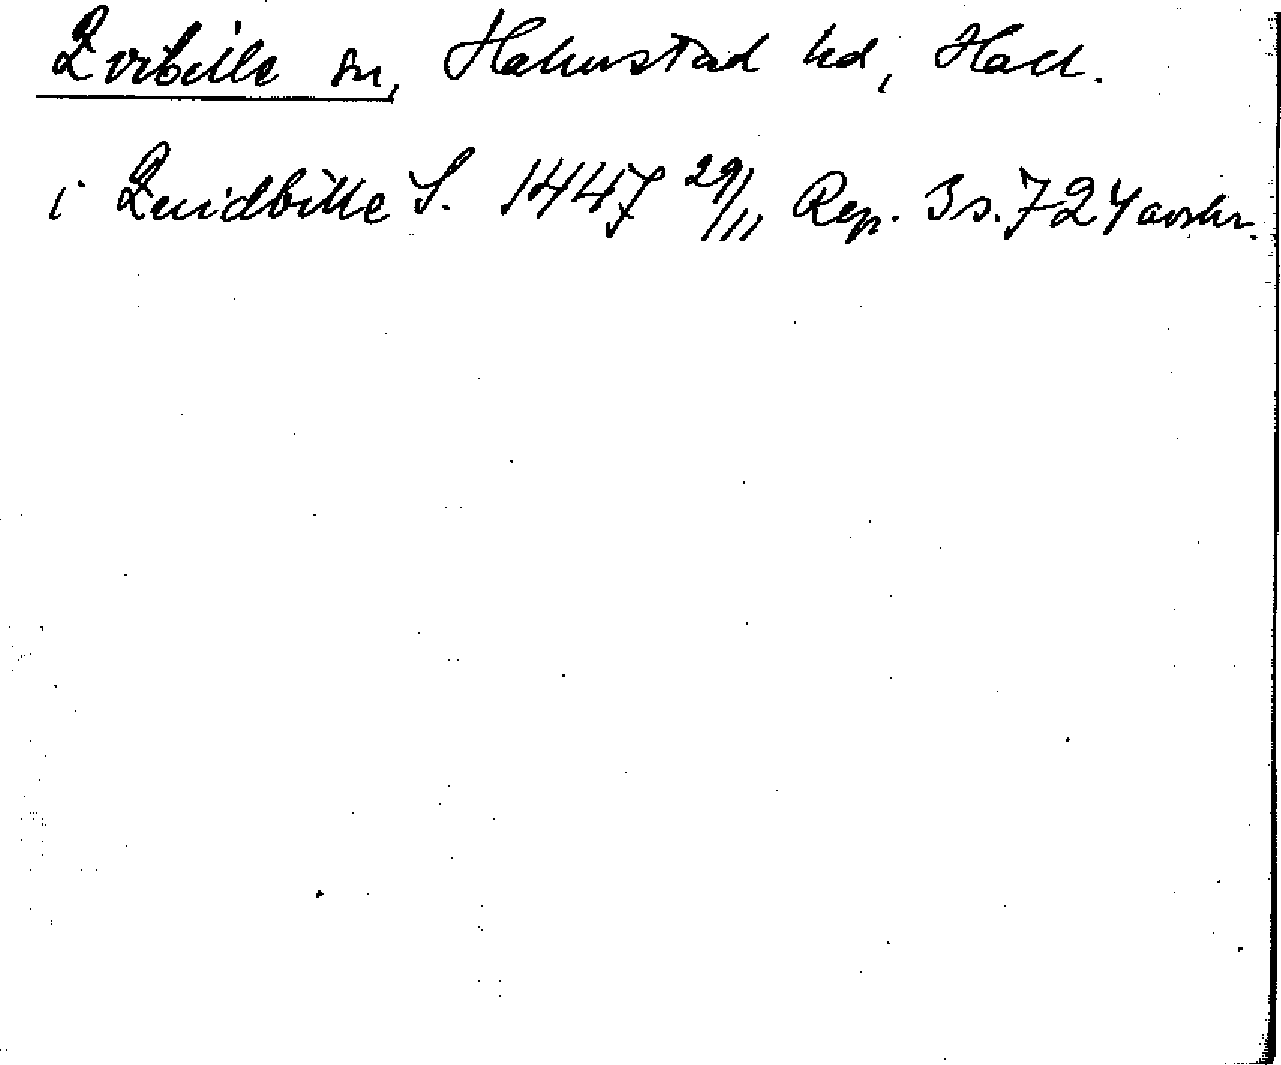 Qvibille sn, Halmstad hd, Hall.
i Quidbille S. 1447 29/11 Rep. 3 s. 724 avskr.